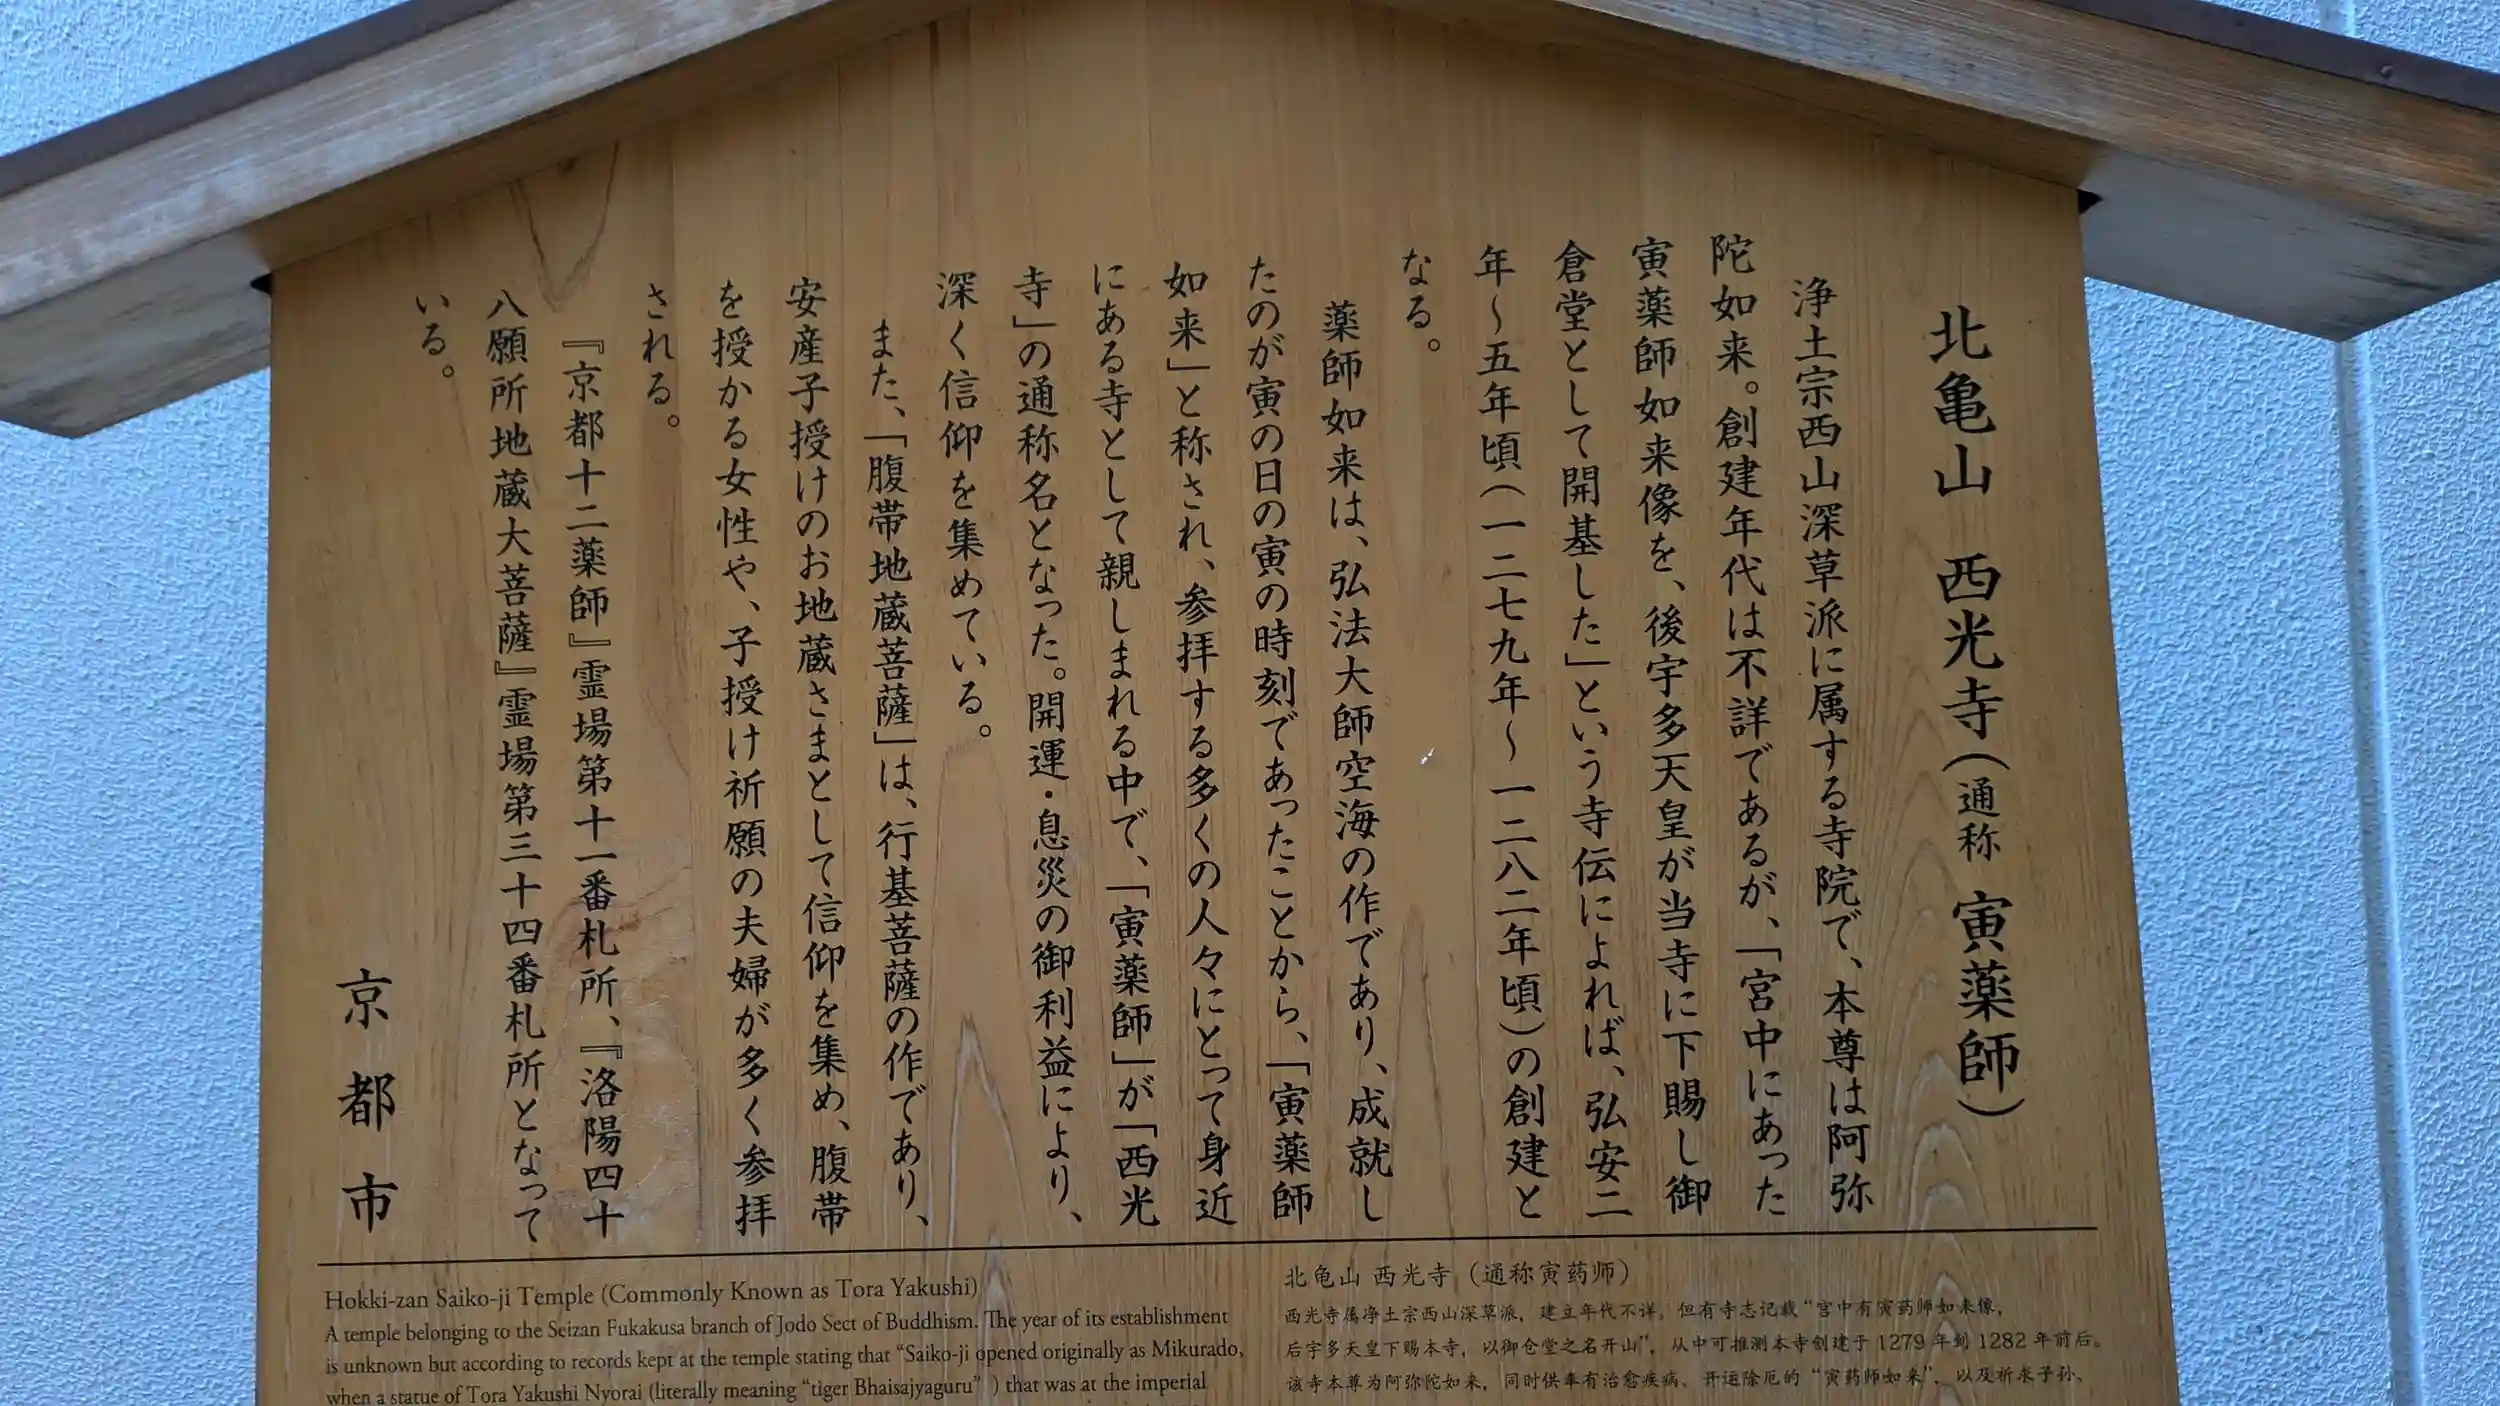 北亀山 西光寺（通称 寅薬師）
浄土宗西山深草派に属する寺院で、本尊は阿弥
陀如来。創建年代は不詳であるが、「宮中にあった
寅薬師如来像を、後宇多天皇が当寺に下賜し御
倉堂として開基した」という寺伝によれば、弘安二
年～五年頃（一二七九年～一二八二年頃）の創建と
なる。
薬師如来は、弘法大師空海の作であり、成就し
たのが寅の日の寅の時刻であったことから、「寅薬師
如来」と称され、参拝する多くの人々にとって身近
にある寺として親しまれる中で、「寅薬師」が「西光
寺」の通称名となった。開運・息災の御利益により、
深く信仰を集めている。
また、「腹帯地蔵菩薩」は、行基菩薩の作であり、
安産子授けのお地蔵さまとして信仰を集め、腹帯
を授かる女性や、子授け祈願の夫婦が多く参拝
される。
『京都十二薬師』霊場第十一番札所、『洛陽四十
八願所地蔵大菩薩』霊場第三十四番札所となって
いる。
京都市
Hokki-zan Saiko-ji Temple (Commonly Known as Tora Yakushi)
A temple belonging to the Seizan Fukakusa branch of Jodo Sect of Buddhism. The year of its establishment
is unknown but according to records kept at the temple stating that “Saiko-ji opened originally as Mikurado,
when a statue of Tora Yakushi Nyorai (literally meaning “tiger Bhaisajyaguru” ) that was at the imperial
北龟山 西光寺（通称寅药师）
西光寺属净土宗西山深草派，建立年代不详。但有寺志记载“宫中有寅药师如来像，
后宇多天皇下赐本寺，以御仓堂之名开山”，从中可推测本寺创建于 1279 年到 1282 年前后。
该寺本尊为阿弥陀如来，同时供奉有治愈疾病、开运除厄的“寅药师如来”，以及祈求子孙、